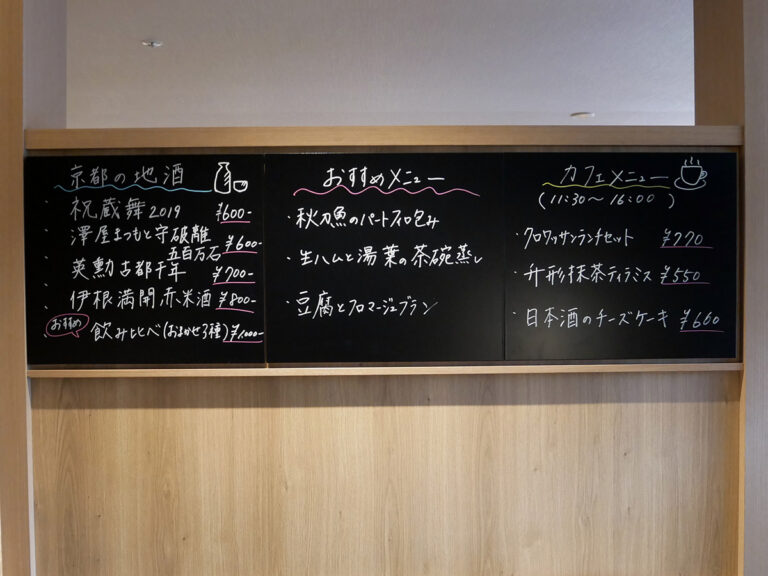 京都の地酒
・祝蔵舞2019 ¥600-
・澤屋まつもと守破離
五百万石 ¥600-
・英勲古都千年 ¥700-
・伊根満開赤米酒 ¥800-
おすすめ
・飲み比べ(おまかせ3種) ¥1,000-
おすすめメニュー
・秋刀魚のパートフィロ包み
・生ハムと湯葉の茶碗蒸し
・豆腐とフロマージュブラン
カフェメニュー
(11:30〜16:00)
・クロワッサンランチセット ¥770
・升形抹茶ティラミス ¥550
・日本酒のチーズケーキ ¥660